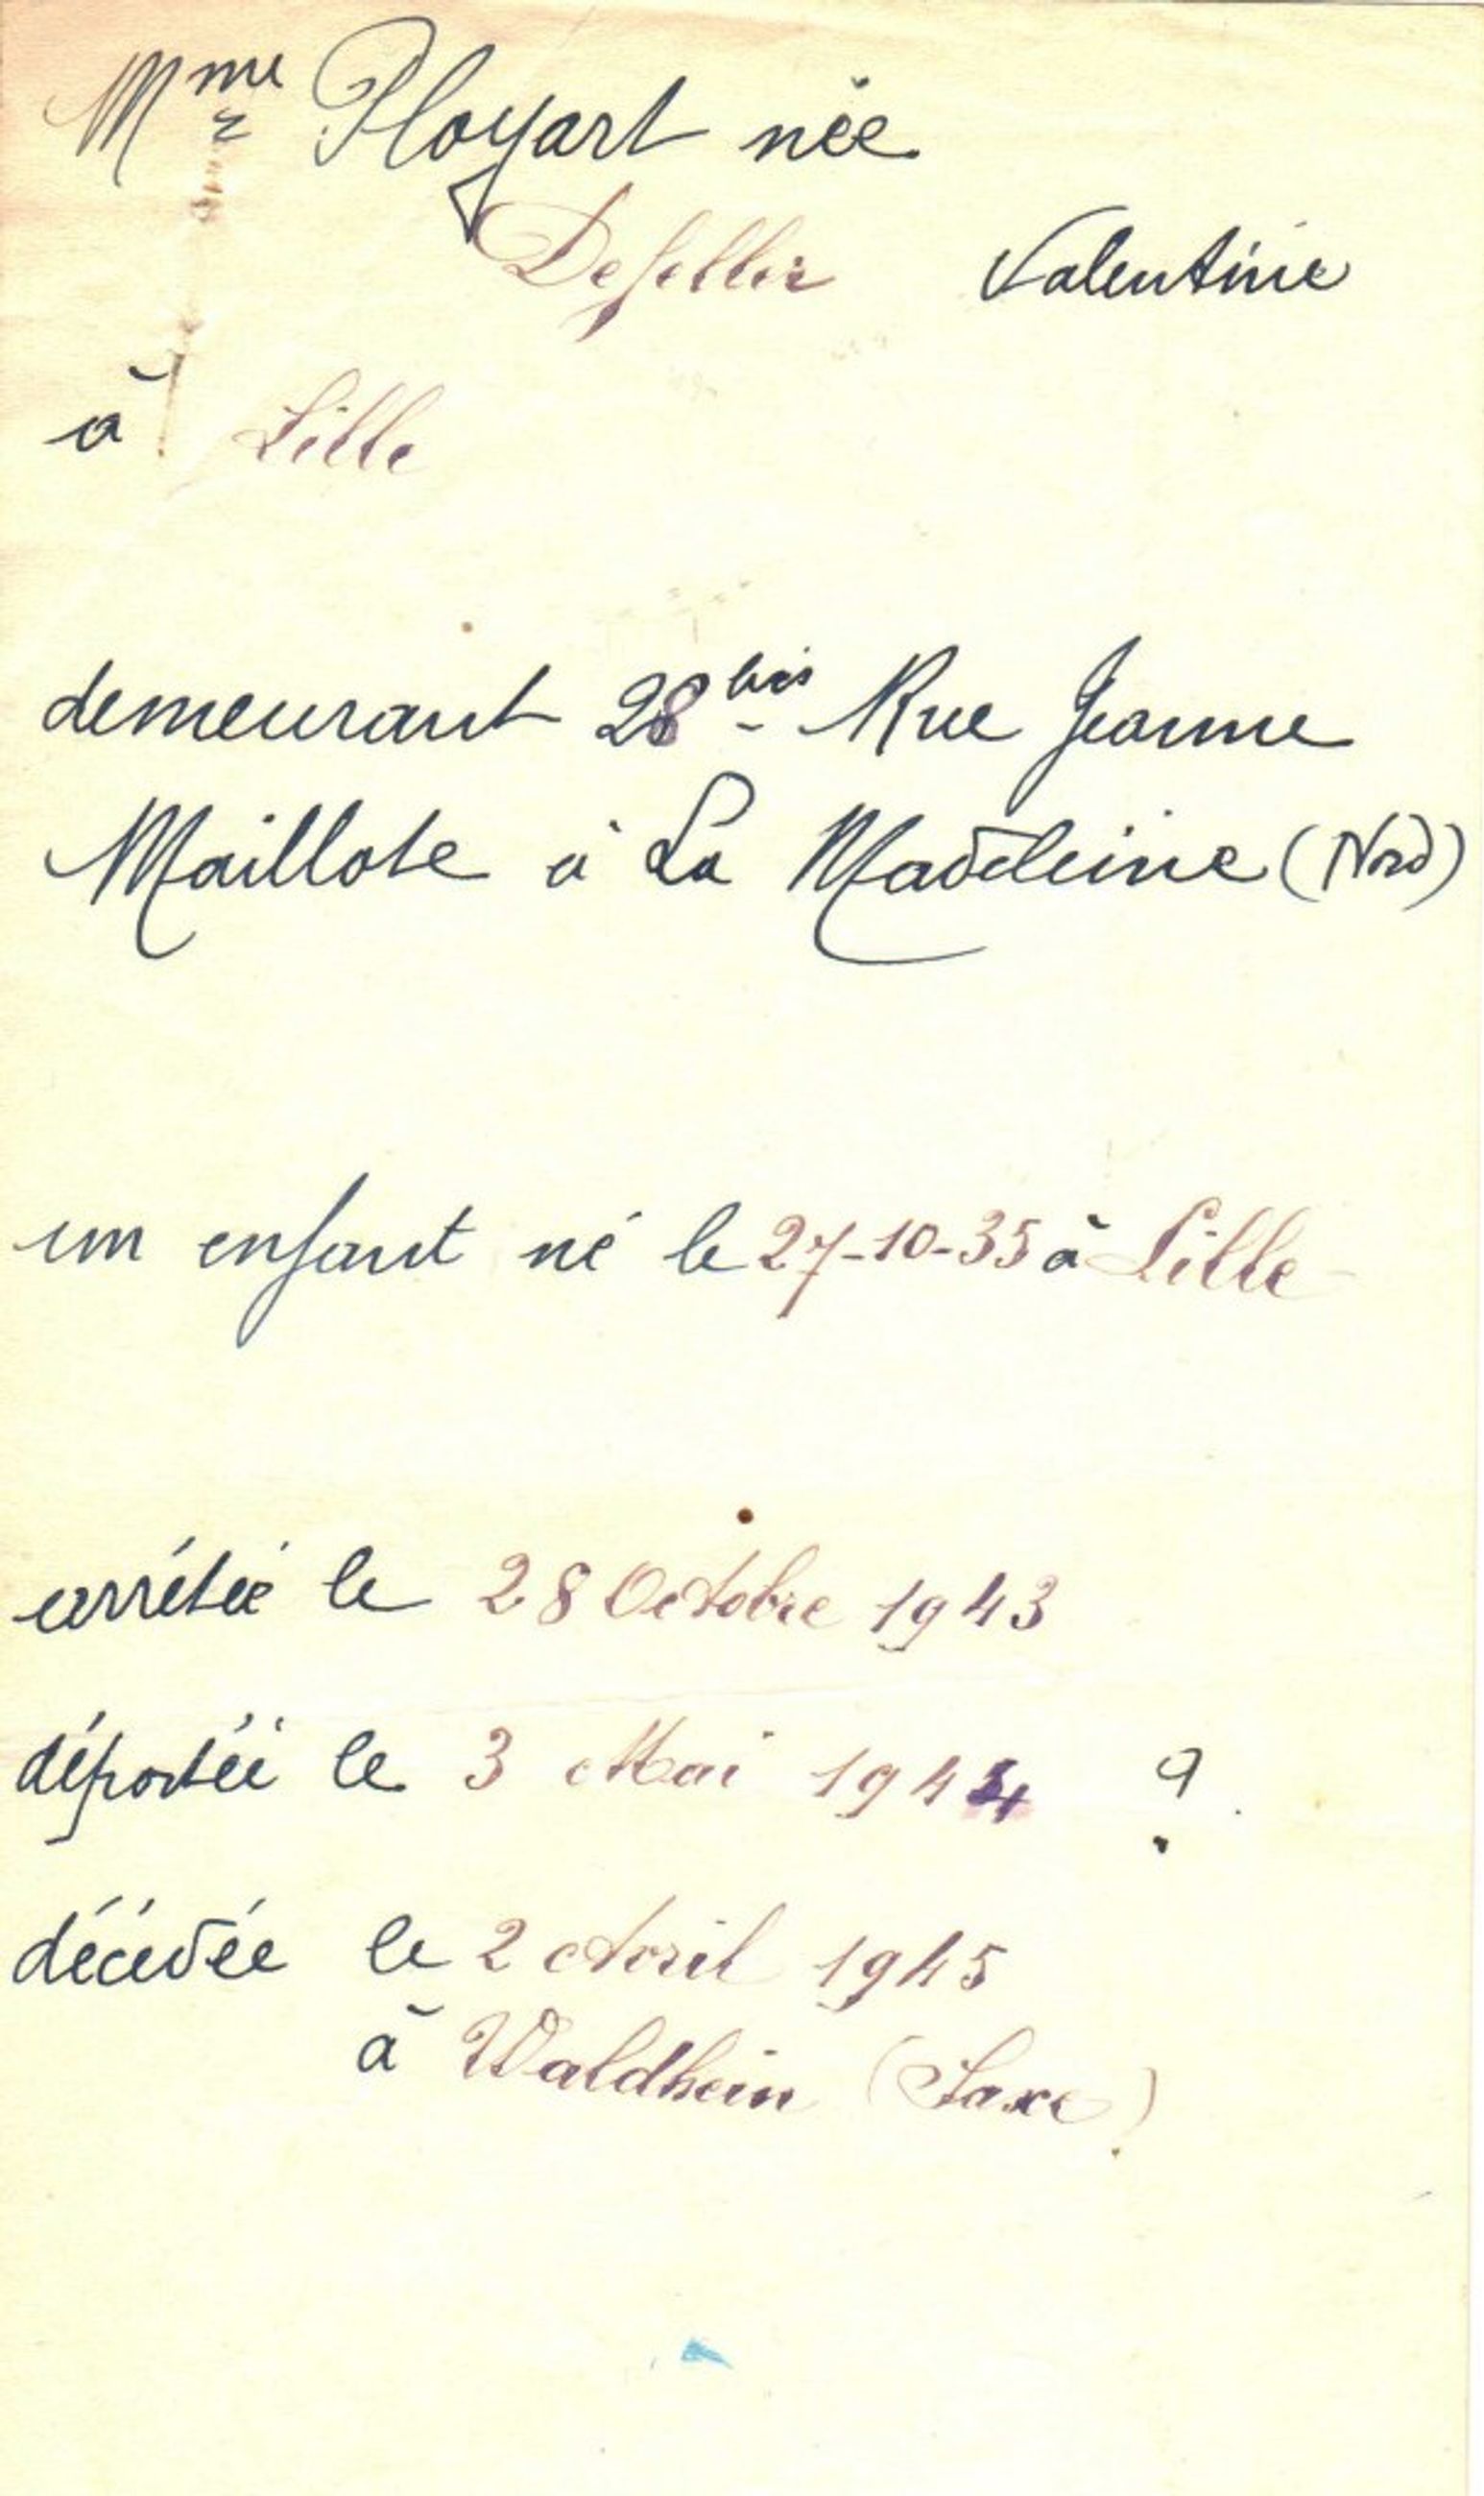 Mme Ployart née
Valentine
à Lille
demeurant 28 bis Rue Jeanne
Maillote à La Madeleine (Nord)
un enfant né le 27-10-35 à Lille
arrêtée le 28 Octobre 1943
déportée le 3 Mai 1944 ?
décédée le 2 Avril 1945
à Waldhein (Saxe)